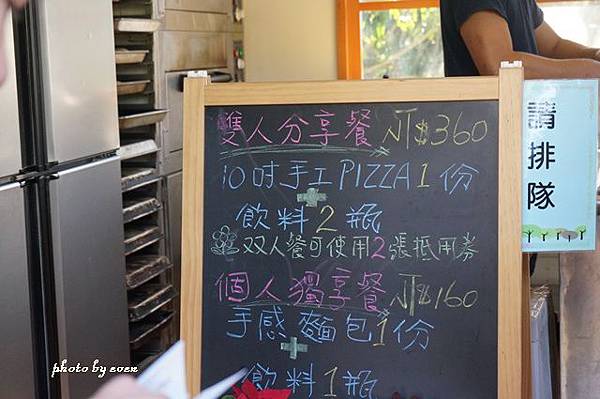 雙人分享餐 NT$360
10吋手工PIZZA 1份
+
飲料2瓶
双人餐可使用2張抵用券
個人獨享餐 NT$160
手感麵包1份
+
飲料1瓶
請排隊
photo by eoen